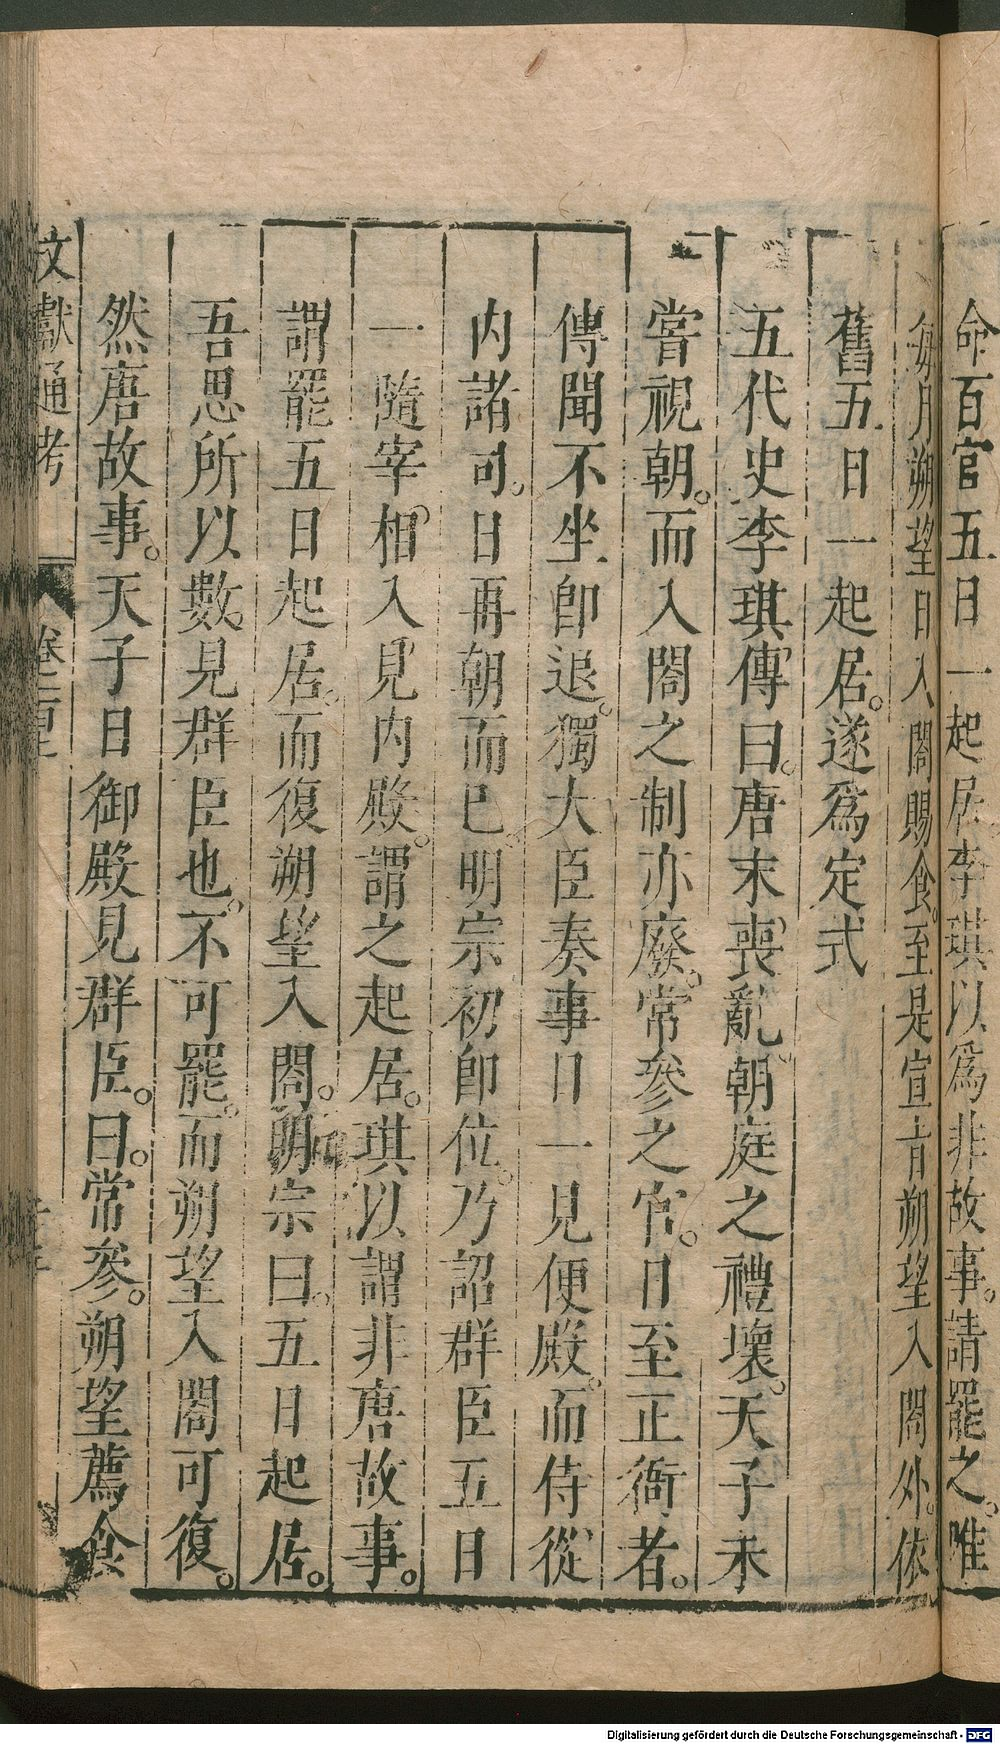 命百官五日一起居李琪以爲非故事。請罷之。唯
每月朔望日入閤賜食。至是宣旨朔望入閤外。依
舊五日一起居。遂爲定式
五代史李琪傳曰。唐末喪亂朝庭之禮壞。天子未
嘗視朝。而入閤之制亦廢。常參之官。日至正衙者。
傳聞不坐卽退。獨大臣奏事日一見便殿。而侍從
内諸司。日再朝而已。明宗初卽位。乃詔群臣五日
一隨宰相入見内殿。謂之起居。琪以謂非唐故事。
謂罷五日起居。而復朔望入閤。明宗曰。五日起居。
吾思所以數見群臣也。不可罷。而朔望入閤可復。
然唐故事。天子日御殿見群臣。曰。常參。朔望薦食
文獻通考 卷一百
Digitalisierung gefördert durch die Deutsche Forschungsgemeinschaft - DFG